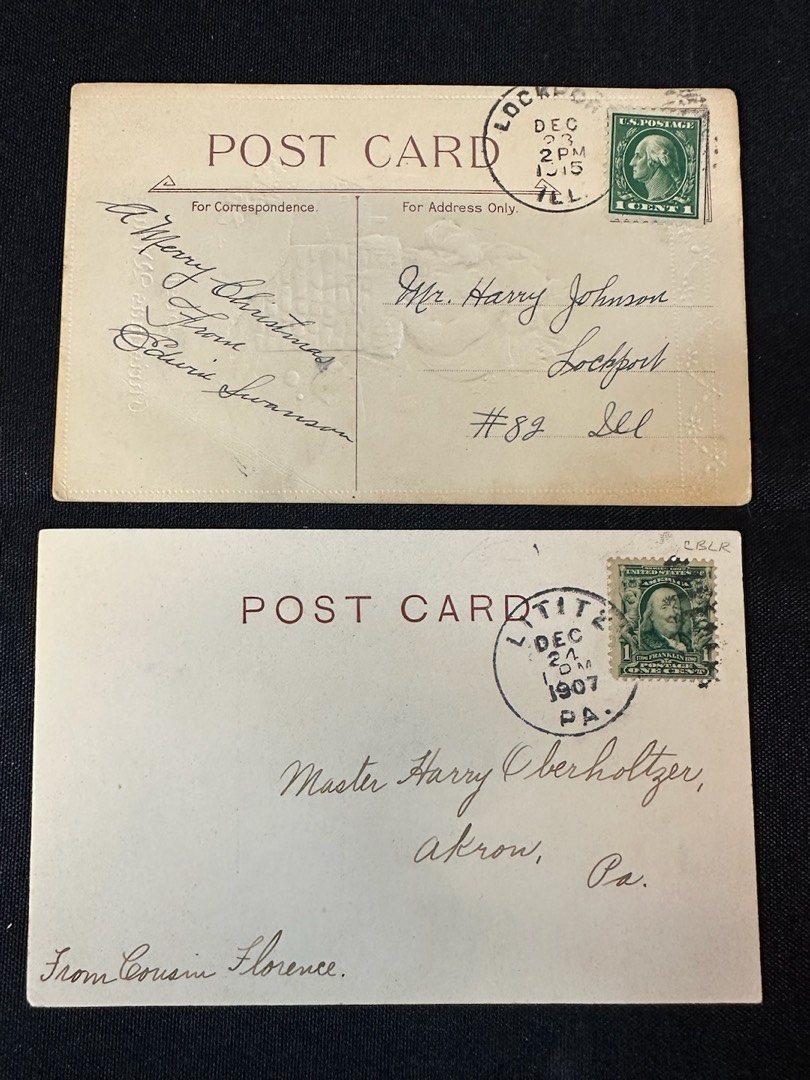 POST CARD
LOCKPOR
DEC
23
2 PM
1915
ILL.
U.S. POSTAGE
1 CENT 1
For Correspondence.
For Address Only.
A Merry Christmas
From
Edwin Swanson
Mr. Harry Johnson
Lockport
#82 Ill
CBLR
POST CARD
LITITZ
DEC
24
1 PM
1907
PA.
UNITED STATES OF
AMERICA
1 FRANKLIN 1
POSTAGE
ONE CENT
Master Harry Oberholtzer,
Akron,
Pa.
From Cousin Florence.